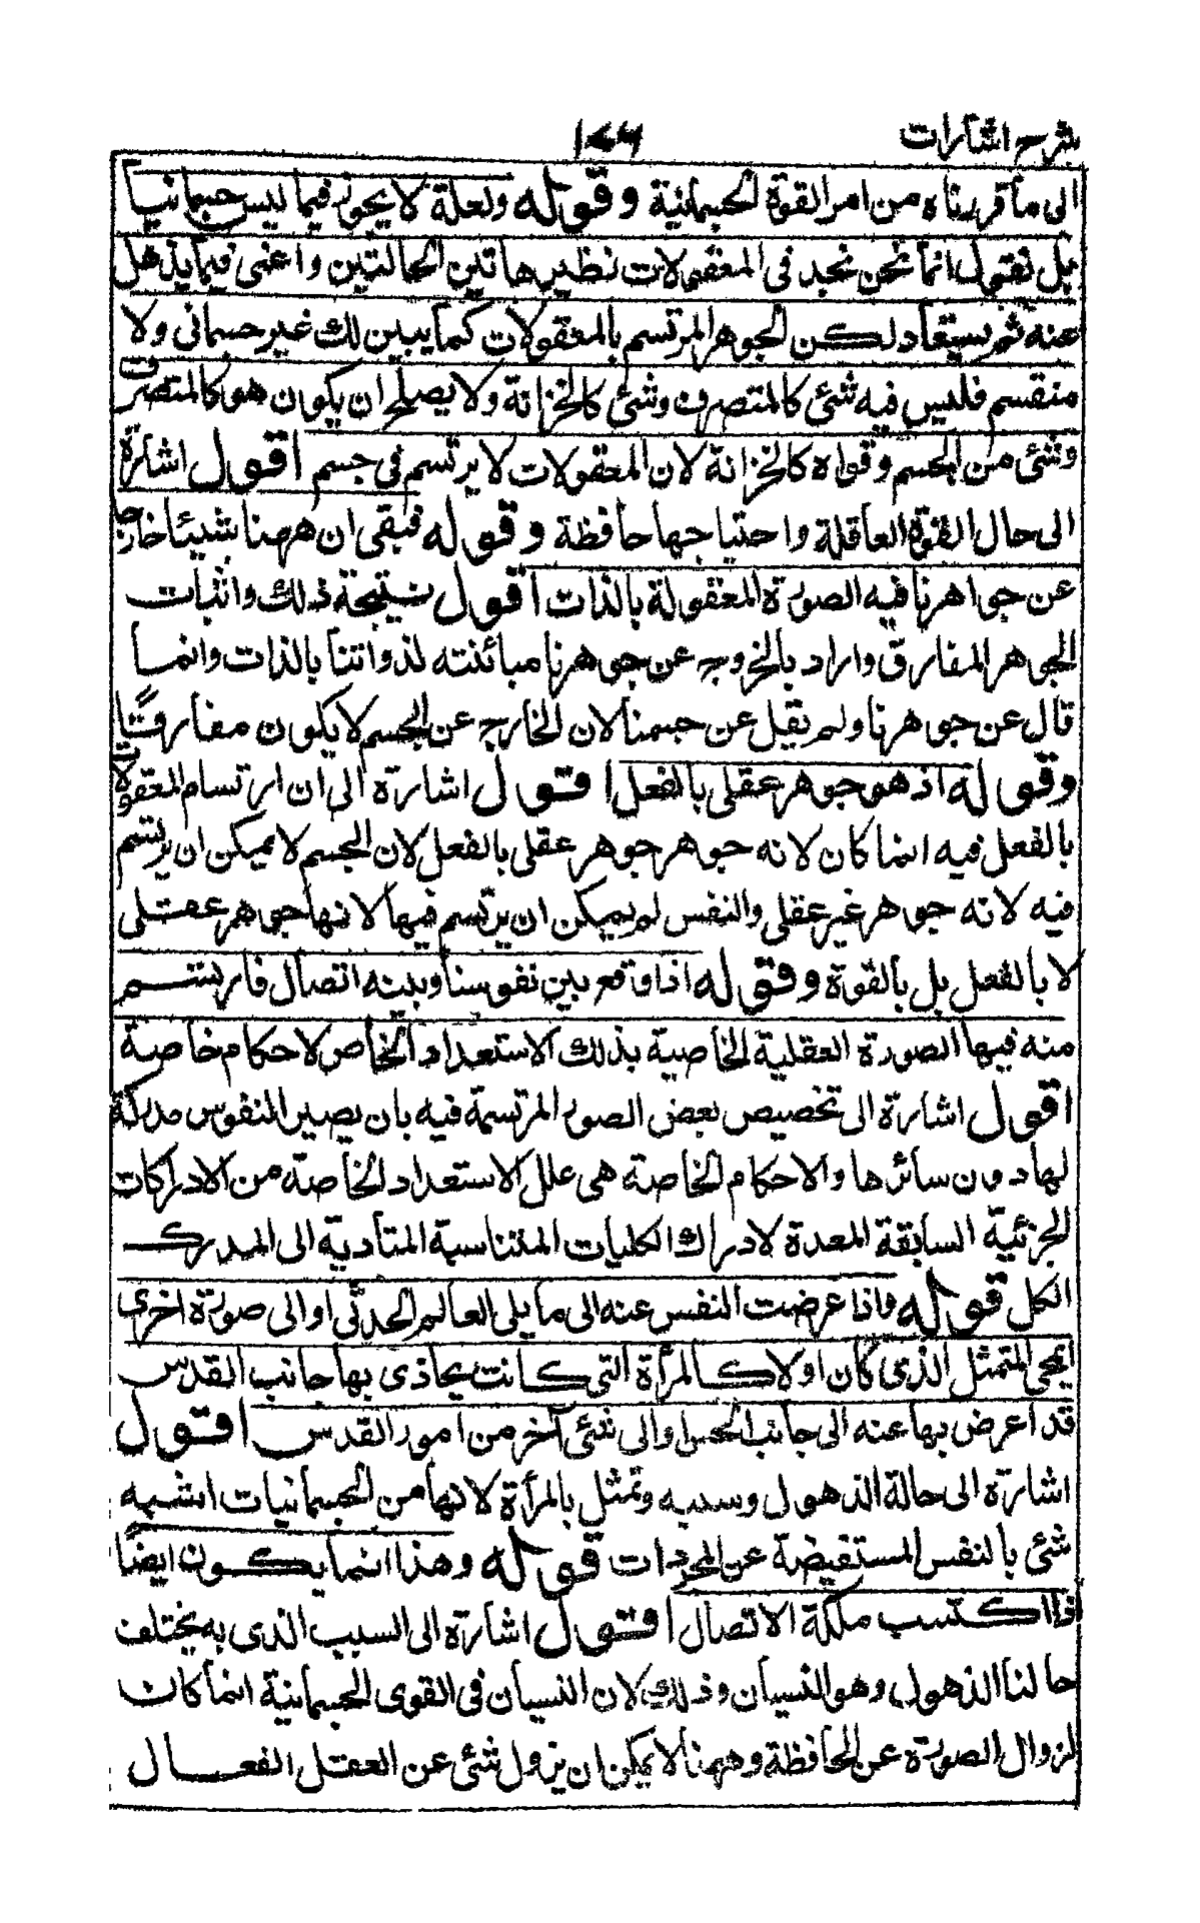 شرح اشارات ١٧٦
الى ما قررناه من امر القوة الجسمانية وقوله ولعلة لا يجوز فيما ليس جسمانيا
بل نقول انما نحن نجد فى المعقولات نظير هاتين الحالتين واعنى فيما يذهل
عنه ثم يستعاد لكن الجوهر المرتسم بالمعقولات كما يبين لك غير جسمانى ولا
منقسم فليس فيه شئ كالمتصرف وشئ كالخزانة ولا يصلح ان يكون هو كالمتصرف
وشئ من الجسم وقواه كالخزانة لان المعقولات لا يرتسم فى جسم اقول اشارة
الى حال القوة العاقلة واحتياجها حافظة وقوله فبقى ان ههنا شيئا خارجا
عن جواهرنا فيه الصورة المعقولة بالذات اقول نتيجة ذلك واثبات
الجوهر المفارق واراد بالخروج عن جوهرنا مبائنته لذواتنا بالذات وانما
قال عن جوهرنا ولم يقل عن جسمنا لان الخارج عن الجسم لا يكون مفارقا
وقوله اذ هو جوهر عقلى بالفعل اقول اشارة الى ان ارتسام المعقولات
بالفعل فيه انما كان لانه جوهر جوهر عقلى بالفعل لان الجسم لا يمكن ان يرتسم
فيه لانه جوهر غير عقلى والنفس لم يمكن ان يرتسم فيها لانها جوهر عقلى
لا بالفعل بل بالقوة وقوله اذا وقع بين نفوسنا وبينه اتصال فارتسم
منه فيها الصورة العقلية الخاصية بذلك الاستعداد الخاص لاحكام خاصة
اقول اشارة الى تخصيص بعض الصور المرتسمة فيه بان يصير النفوس مدركة
لها دون سائرها والاحكام الخاصة هى علل الاستعداد الخاصة من الادراكات
الجزئية السابقة المعدة لادراك الكليات المتناسبة المتأدية الى المدرك
الكل قوله واذا عرضت النفس عنه الى ما يلى العالم الجسدانى او الى صورة اخرى
انمحى المتمثل الذى كان اولا كالمرأة التى كانت يحاذى بها جانب القدس
قد اعرض بها عنه الى جانب الحس او الى شئ آخر من امور القدس اقول
اشارة الى حالة الذهول وسببه وتمثل بالمرأة لانها من الجسمانيات اشبه
شئ بالنفس المستفيضة عن المجردات قوله وهذا انما يكون ايضا
اذا اكتسب ملكة الاتصال اقول اشارة الى السبب الذى به يختلف
حالنا الذهول وهو النسيان وذلك لان النسيان فى القوى الجسمانية انما كان
لزوال الصورة عن الحافظة وههنا لا يمكن ان يزول شئ عن العقل الفعال